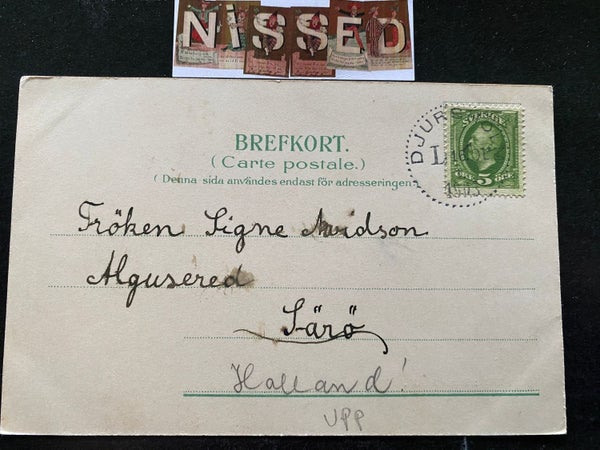 NISSED
BREFKORT.
(Carte postale.)
(Denna sida användes endast för adresseringen
SVERIGE
5
ÖRE
Fröken Signe Arvidson
Algusered
Särö
Halland!
UPP